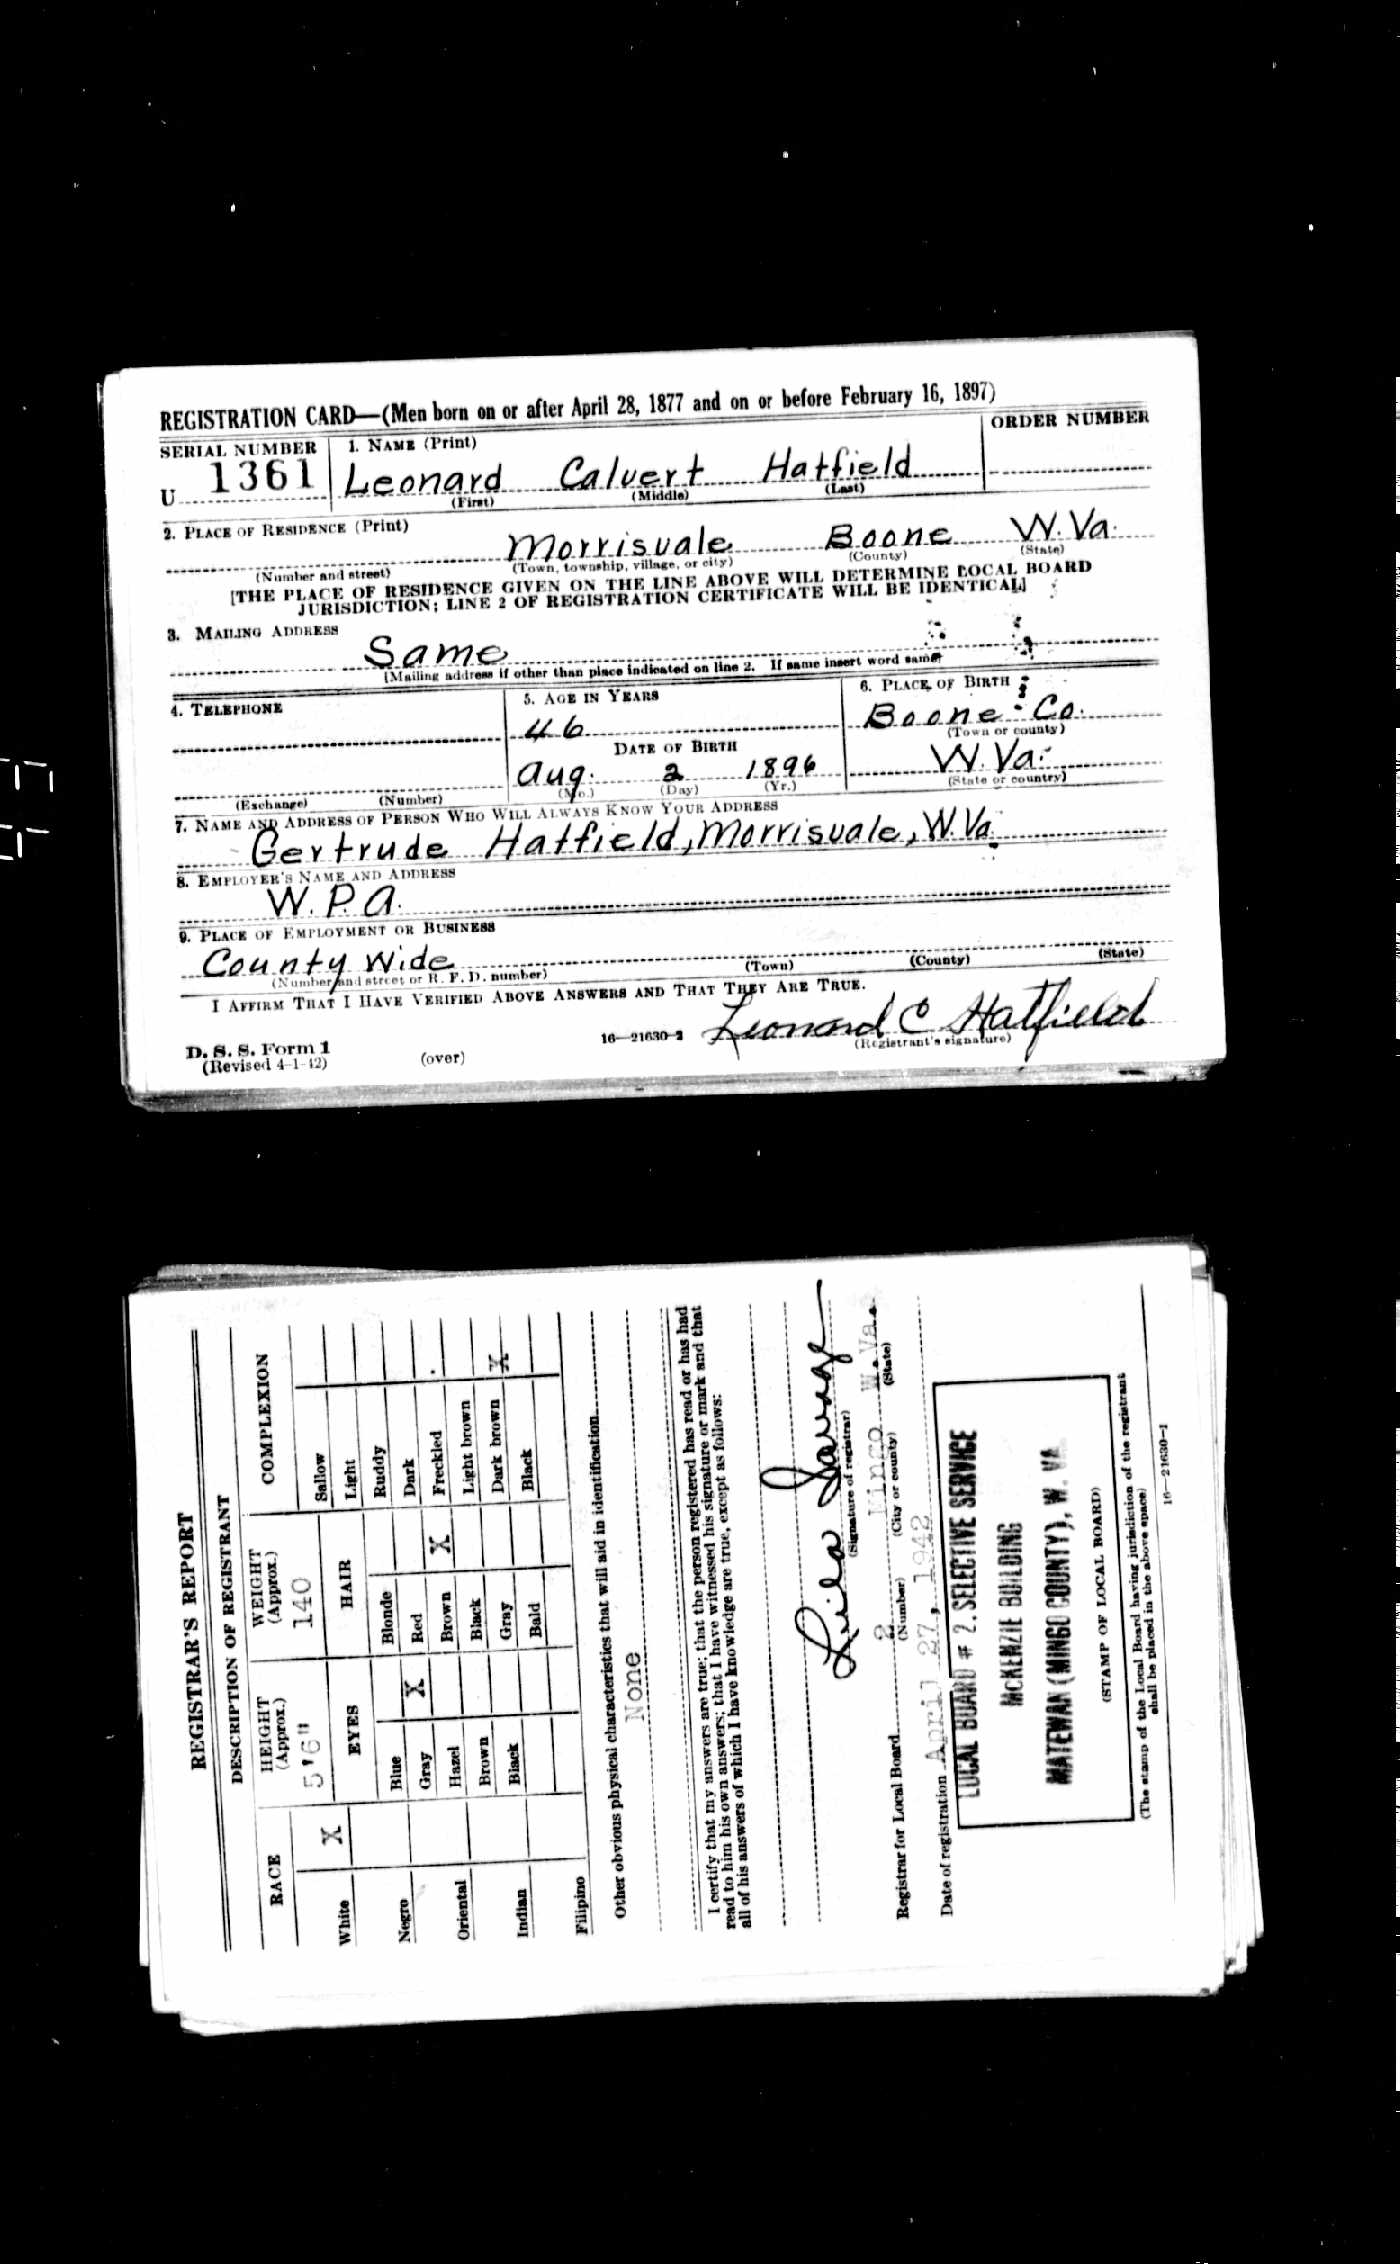 REGISTRATION CARD—(Men born on or after April 28, 1877 and on or before February 16, 1897)
SERIAL NUMBER
1. NAME (Print)
ORDER NUMBER
U 1361
Leonard Calvert Hatfield
(First) (Middle) (Last)
2. PLACE OF RESIDENCE (Print)
Morrisvale Boone W. Va.
(Number and street) (Town, township, village, or city) (County) (State)
[THE PLACE OF RESIDENCE GIVEN ON THE LINE ABOVE WILL DETERMINE LOCAL BOARD
JURISDICTION; LINE 2 OF REGISTRATION CERTIFICATE WILL BE IDENTICAL]
3. MAILING ADDRESS
Same
[Mailing address if other than place indicated on line 2. If same insert word same]
4. TELEPHONE
(Exchange) (Number)
5. AGE IN YEARS
46
DATE OF BIRTH
Aug. 2 1896
(Mo.) (Day) (Yr.)
6. PLACE OF BIRTH
Boone Co.
(Town or county)
W. Va.
(State or country)
7. NAME AND ADDRESS OF PERSON WHO WILL ALWAYS KNOW YOUR ADDRESS
Gertrude Hatfield, Morrisvale, W. Va.
8. EMPLOYER'S NAME AND ADDRESS
W. P. A.
9. PLACE OF EMPLOYMENT OR BUSINESS
County Wide
(Number and street or R. F. D. number) (Town) (County) (State)
I AFFIRM THAT I HAVE VERIFIED ABOVE ANSWERS AND THAT THEY ARE TRUE.
Leonard C Hatfield
(Registrant's signature)
D. S. S. Form 1
(Revised 4-1-42) (over) 16—21630-2
REGISTRAR'S REPORT
DESCRIPTION OF REGISTRANT
RACE
HEIGHT
(Approx.)
WEIGHT
(Approx.)
COMPLEXION
5'6"
140
White X
Negro
Oriental
Indian
Filipino
EYES
Blue
Gray X
Hazel
Brown
Black
HAIR
Blonde
Red
Brown X
Black
Gray
Bald
Sallow
Light
Ruddy
Dark
Freckled
Light brown
Dark brown X
Black
Other obvious physical characteristics that will aid in identification
None
I certify that my answers are true; that the person registered has read or has had
read to him his own answers; that I have witnessed his signature or mark and that
all of his answers of which I have knowledge are true, except as follows:
Savage
(Signature of registrar)
Registrar for Local Board 2 Mingo W. Va.
(Number) (City or county) (State)
Date of registration April 27, 1942
LOCAL BOARD # 2. SELECTIVE SERVICE
MCKENZIE BUILDING
MATEWAN (MINGO COUNTY), W. VA.
(STAMP OF LOCAL BOARD)
(The stamp of the Local Board having jurisdiction of the registrant
shall be placed in the above space)
16—21630-1